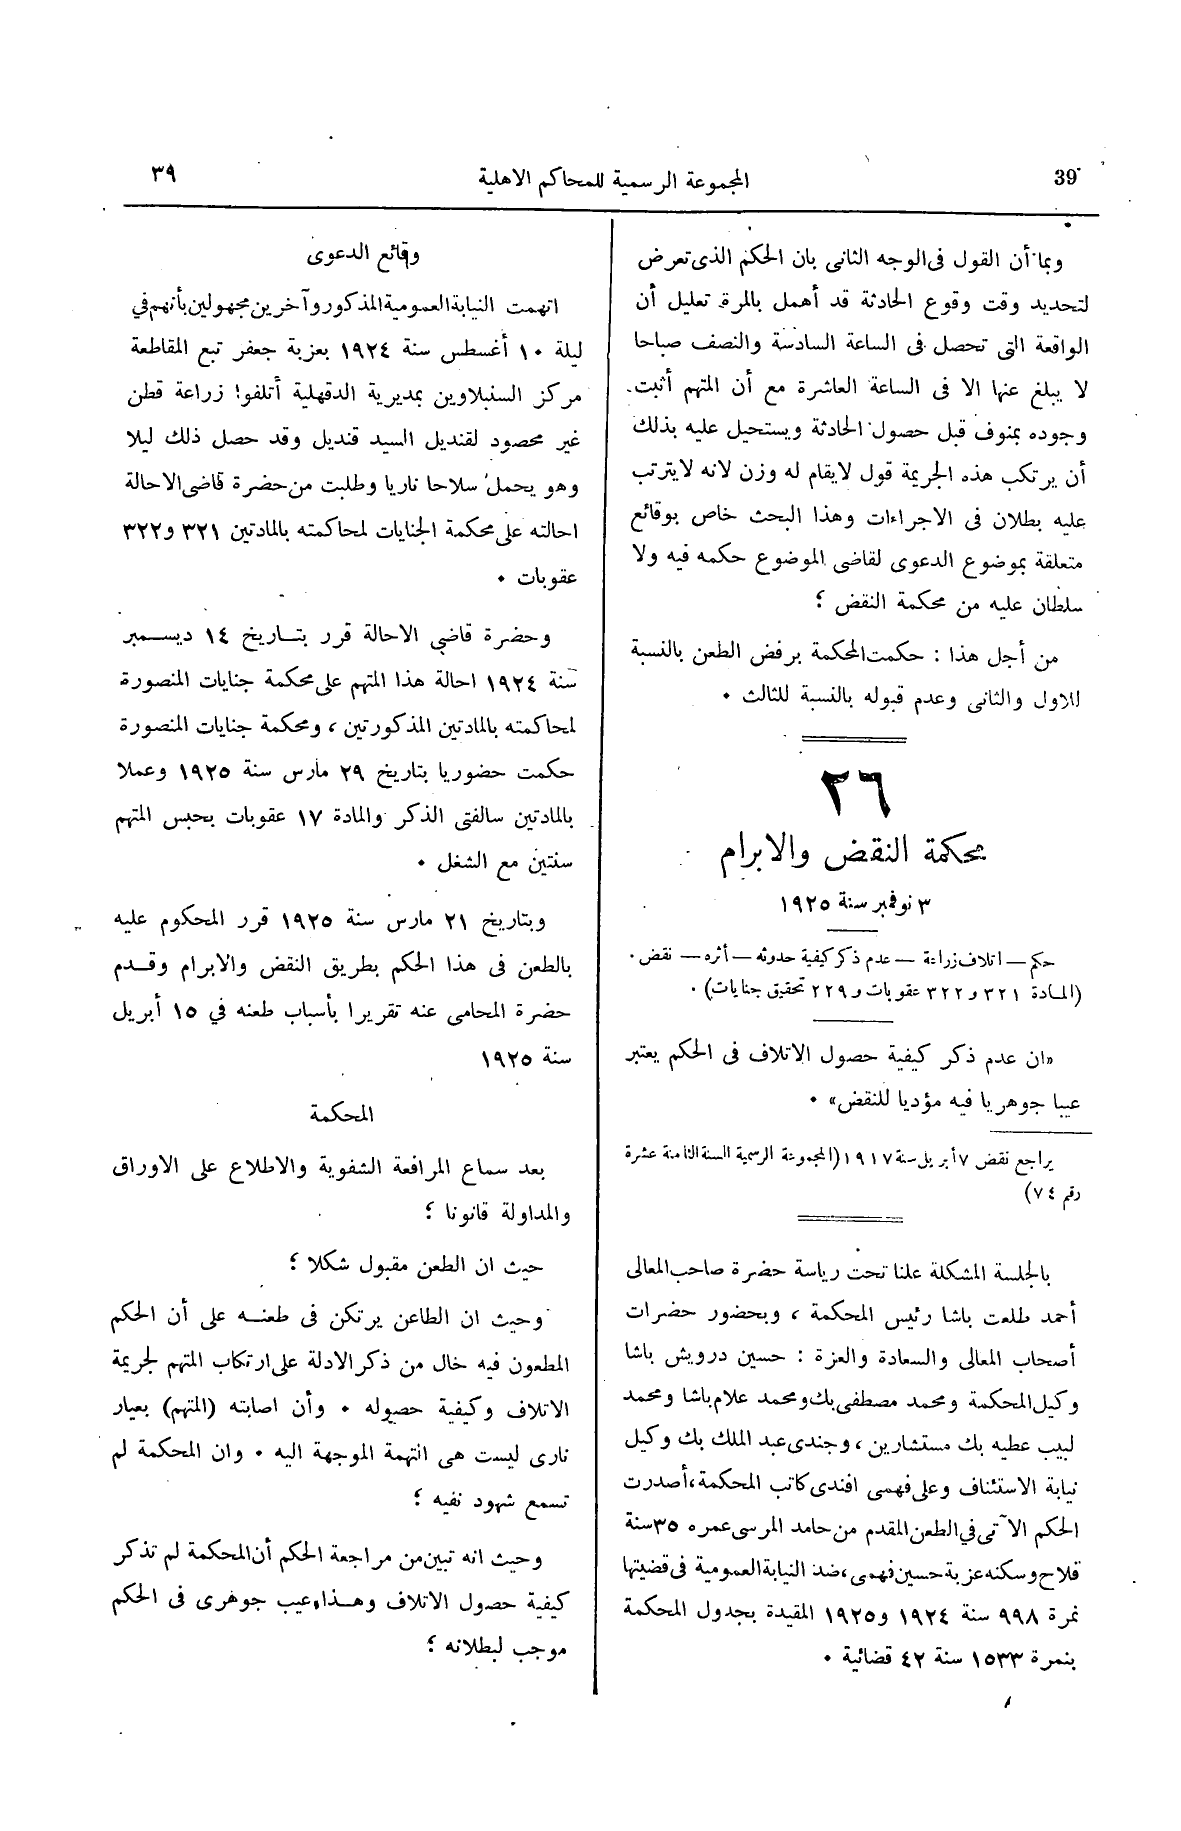 39
المجموعة الرسمية للمحاكم الاهلية
٣٩
وبما أن القول فى الوجه الثانى بان الحكم الذى تعرض
لتحديد وقت وقوع الحادثة قد أهمل بالمرة تعليل أن
الواقعة التى تحصل فى الساعة السادسة والنصف صباحا
لا يبلغ عنها الا فى الساعة العاشرة مع أن المتهم أثبت
وجوده بمنوف قبل حصول الحادثة ويستحيل عليه بذلك
أن يرتكب هذه الجريمة قول لايقام له وزن لانه لايترتب
عليه بطلان فى الاجراءات وهذا البحث خاص بوقائع
متعلقة بموضوع الدعوى لقاضى الموضوع حكمه فيه ولا
سلطان عليه من محكمة النقض ؛
من أجل هذا : حكمت المحكمة برفض الطعن بالنسبة
للاول والثانى وعدم قبوله بالنسبة للثالث ٠
٢٦
محكمة النقض والابرام
٣ نوفمبر سنة ١٩٢٥
حكم — اتلاف زراعة — عدم ذكر كيفية حدوثه — أثره — نقض ٠
(المادة ٣٢١ و ٣٢٢ عقوبات و ٢٢٩ تحقيق جنايات) ٠
«ان عدم ذكر كيفية حصول الاتلاف فى الحكم يعتبر
عيبا جوهريا فيه مؤديا للنقض» ٠
يراجع نقض ٧ أبريل سنة ١٩١٧ (المجموعة الرسمية السنة الثامنة عشرة
رقم ٧٤)
بالجلسة المشكلة علنا تحت رياسة حضرة صاحب المعالى
أحمد طلعت باشا رئيس المحكمة ، وبحضور حضرات
أصحاب المعالى والسعادة والعزة : حسين درويش باشا
وكيل المحكمة ومحمد مصطفى بك ومحمد علام باشا ومحمد
لبيب عطيه بك مستشارين ، وجندى عبد الملك بك وكيل
نيابة الاستئناف وعلى فهمى افندى كاتب المحكمة، أصدرت
الحكم الآتى فى الطعن المقدم من حامد المرسى عمره ٣٥ سنة
فلاح وسكنه عزبة حسين فهمى، ضد النيابة العمومية فى قضيتها
نمرة ٩٩٨ سنة ١٩٢٤ و١٩٢٥ المقيدة بجدول المحكمة
بنمرة ١٥٣٣ سنة ٤٢ قضائية ٠
وقائع الدعوى
اتهمت النيابة العمومية المذكور وآخرين مجهولين بأنهم فى
ليلة ١٠ أغسطس سنة ١٩٢٤ بعزبة جعفر تبع المقاطعة
مركز السنبلاوين بمديرية الدقهلية أتلفوا زراعة قطن
غير محصود لقنديل السيد قنديل وقد حصل ذلك ليلا
وهو يحمل سلاحا ناريا وطلبت من حضرة قاضى الاحالة
احالته على محكمة الجنايات لمحاكمته بالمادتين ٣٢١ و٣٢٢
عقوبات ٠
وحضرة قاضى الاحالة قرر بتاريخ ١٤ ديسمبر
سنة ١٩٢٤ احالة هذا المتهم على محكمة جنايات المنصورة
لمحاكمته بالمادتين المذكورتين ، ومحكمة جنايات المنصورة
حكمت حضوريا بتاريخ ٢٩ مارس سنة ١٩٢٥ وعملا
بالمادتين سالفتى الذكر والمادة ١٧ عقوبات بحبس المتهم
سنتين مع الشغل ٠
وبتاريخ ٢١ مارس سنة ١٩٢٥ قرر المحكوم عليه
بالطعن فى هذا الحكم بطريق النقض والابرام وقدم
حضرة المحامى عنه تقريرا بأسباب طعنه فى ١٥ أبريل
سنة ١٩٢٥
المحكمة
بعد سماع المرافعة الشفوية والاطلاع على الاوراق
والمداولة قانونا ؛
حيث ان الطعن مقبول شكلا ؛
وحيث ان الطاعن يرتكن فى طعنه على أن الحكم
المطعون فيه خال من ذكر الادلة على ارتكاب المتهم لجريمة
الاتلاف وكيفية حصوله ٠ وأن اصابته (المتهم) بعيار
نارى ليست هى التهمة الموجهة اليه ٠ وان المحكمة لم
تسمع شهود نفيه ؛
وحيث انه تبين من مراجعة الحكم أن المحكمة لم تذكر
كيفية حصول الاتلاف وهذا عيب جوهرى فى الحكم
موجب لبطلانه ؛